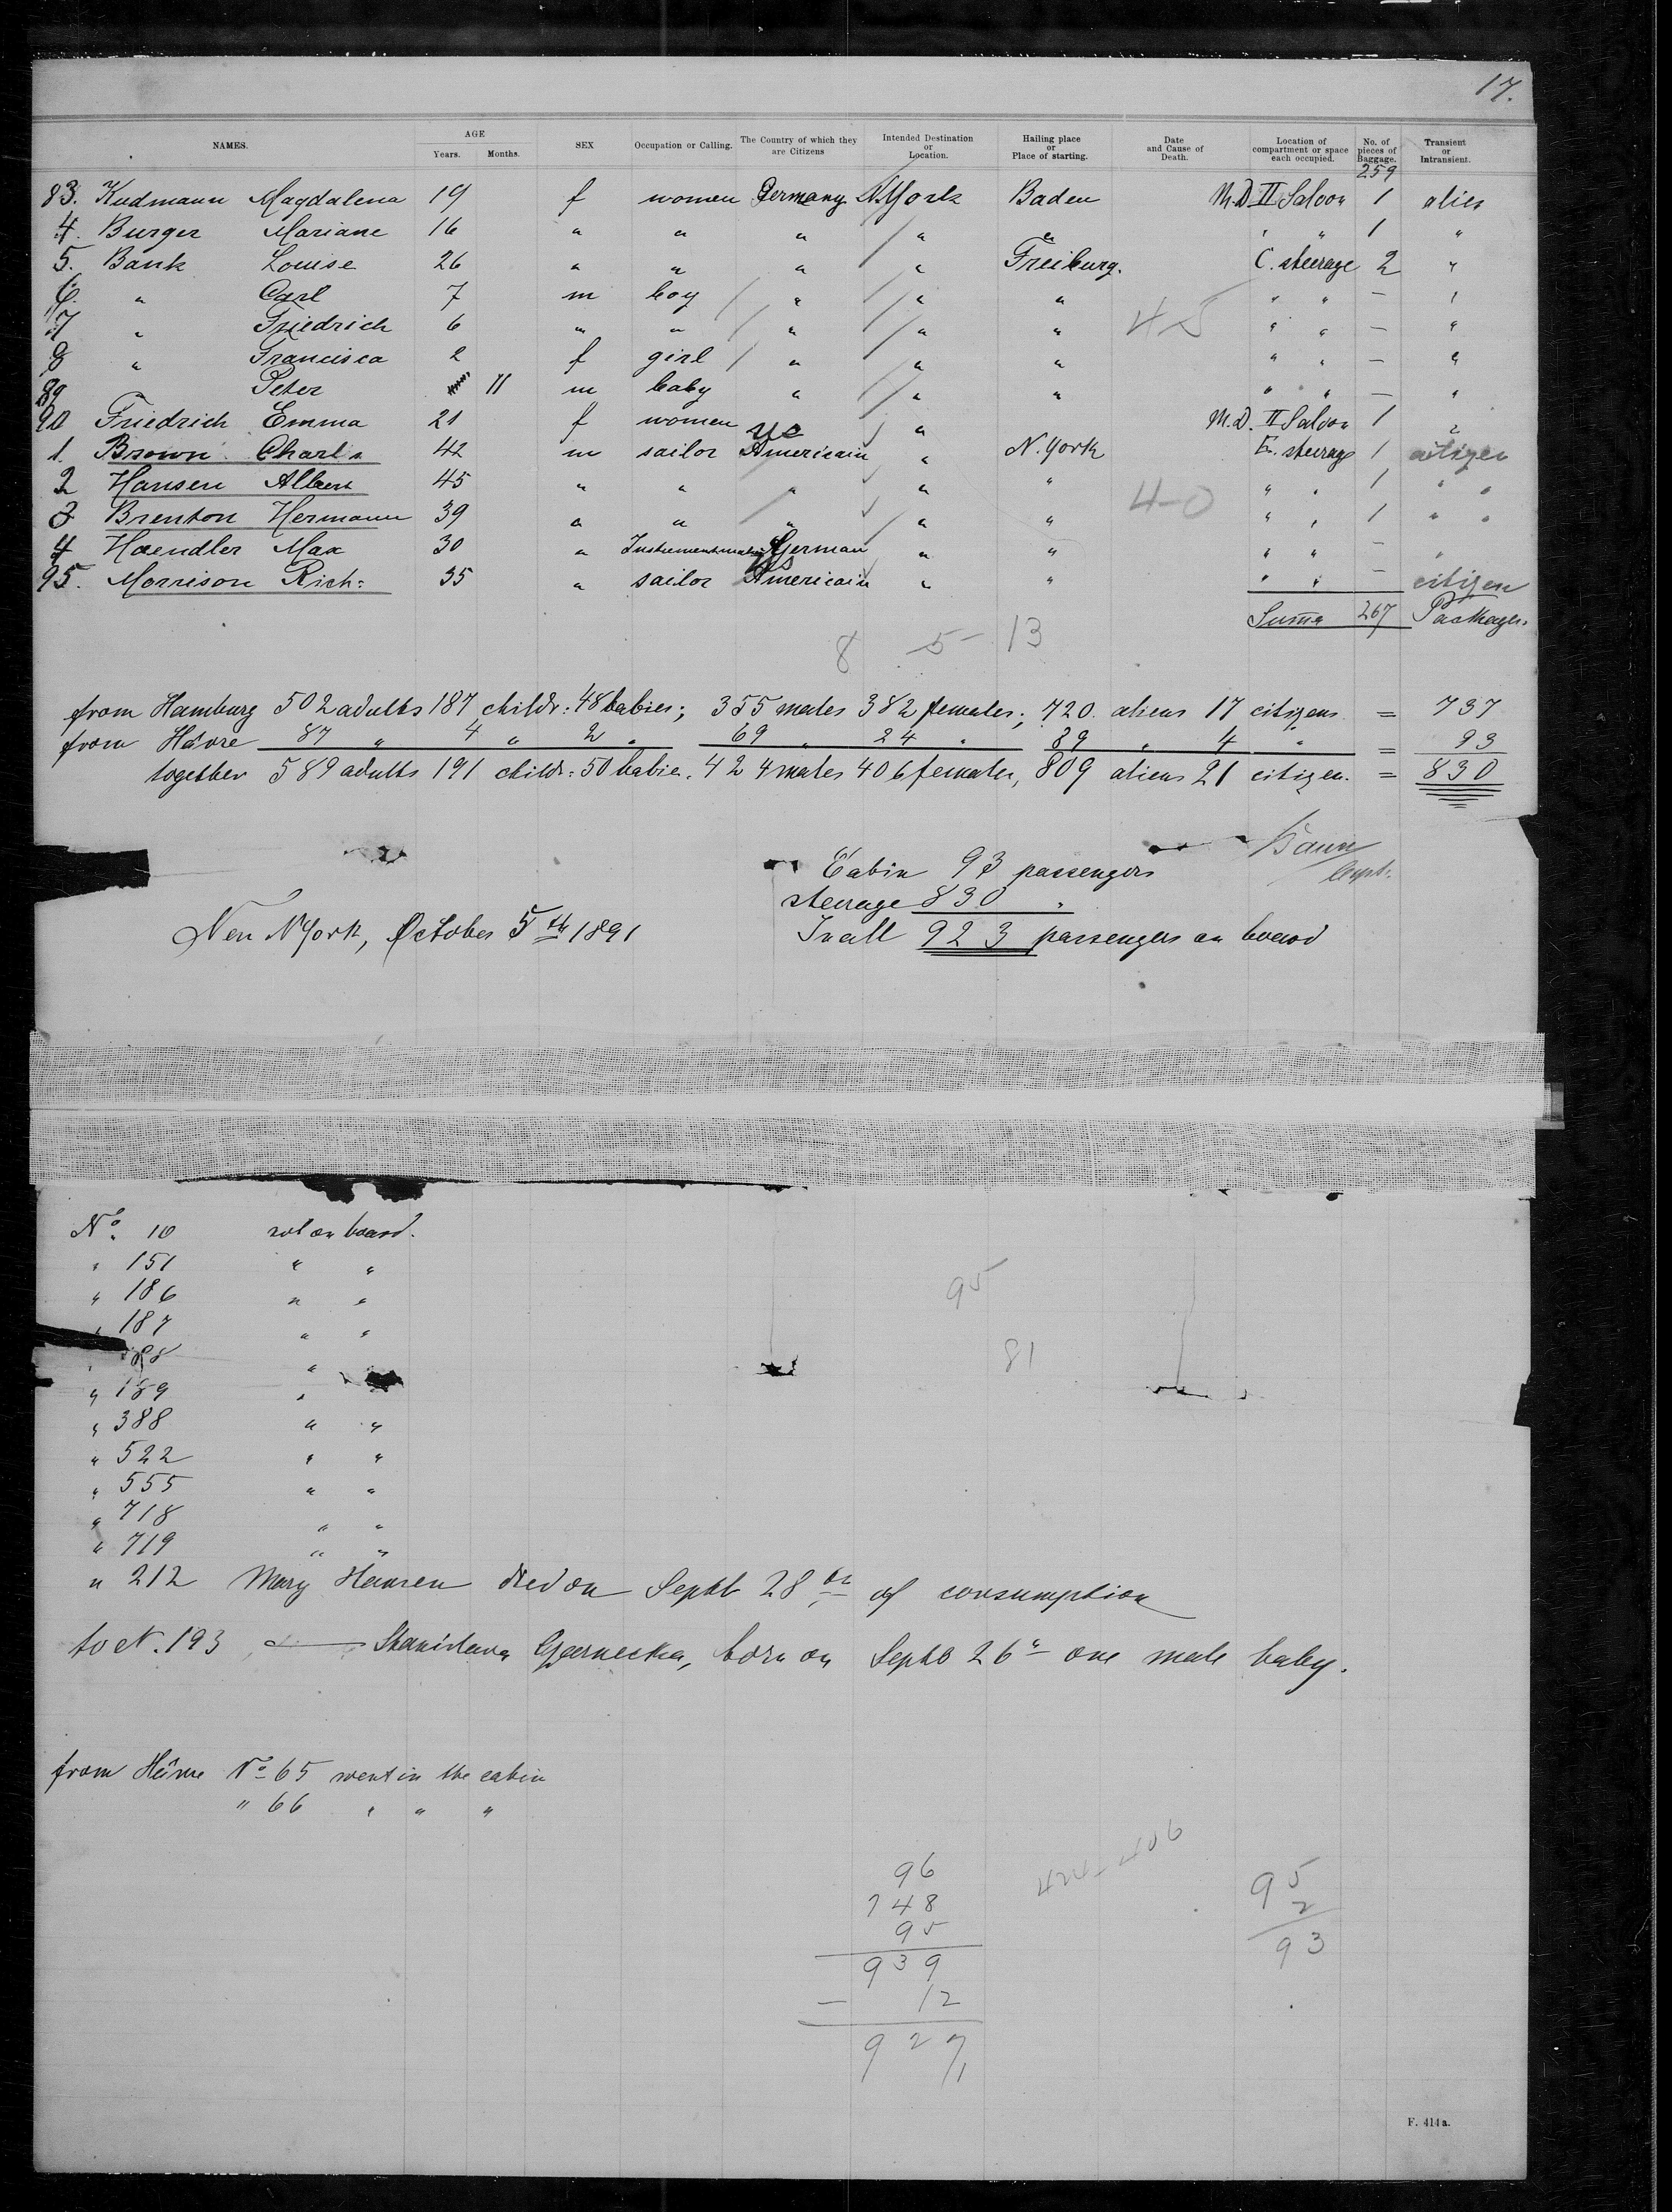 17.
NAMES. AGE Years. Months. SEX Occupation or Calling. The Country of which they are Citizens Intended Destination or Location. Hailing place or Place of starting. Date and Cause of Death. Location of compartment or space each occupied. No. of pieces of Baggage. Transient or Intransient.
259
83. Kudmann Magdalena 19 f women Germany N.York Baden M.D. II Saloon 1 alien
4. Burger Mariane 16 " " " " " " " 1 "
5. Bank Louise 26 " " " " Freiburg. C. steerage 2 "
6. " Carl 7 m boy " " " " " — "
7 " Friedrich 6 " " " " " " " — "
8 " Francisca 2 f girl " " " " " — "
89 Peter 11 m baby " " " " " — "
90 Friedrich Emma 21 f women " M.D. II Saloon 1 "
1. Brown Charls 42 m sailor US Americain " N.York E. steerage 1 citizen
2 Hansen Albert 45 " " " " " " " 1 " "
3 Brenton Hermann 39 " " " " " " " 1 " "
4 Haendler Max 30 " German " " " " — "
95. Morrison Rich: 35 " sailor US Americain " " " " — citizen
45
40
Summa 267 Packages.
8 5 13
from Hamburg 502 adults 187 childr: 48 babies; 355 males 382 females; 720 aliens 17 citizens = 737
from Hâvre 87 " 4 " 2 " 69 " 24 " 89 " 4 " = 93
together 589 adults 191 childr: 50 babies. 424 males 406 females, 809 aliens 21 citizen. = 830
Capt.
Cabin 93 passengers
steerage 830 "
In all 923 passengers on board
New NYork, October 5th 1891
No. 10 not on board.
" 151 " "
" 186 " "
" 187 " "
" 188 "
" 189 "
" 388 " "
" 522 " "
" 555 " "
" 718 " "
" 719 " "
95
81
" 212 Mary Hansen died on Septb 28th of consumption
to N. 193 Stanislawa Czarnecka, born on Septb 26" one male baby.
from Hâvre No 65 went in the cabin
" 66 " " "
96
748
95
939
— 12
927
424 - 406
95
2
93
F. 414a.